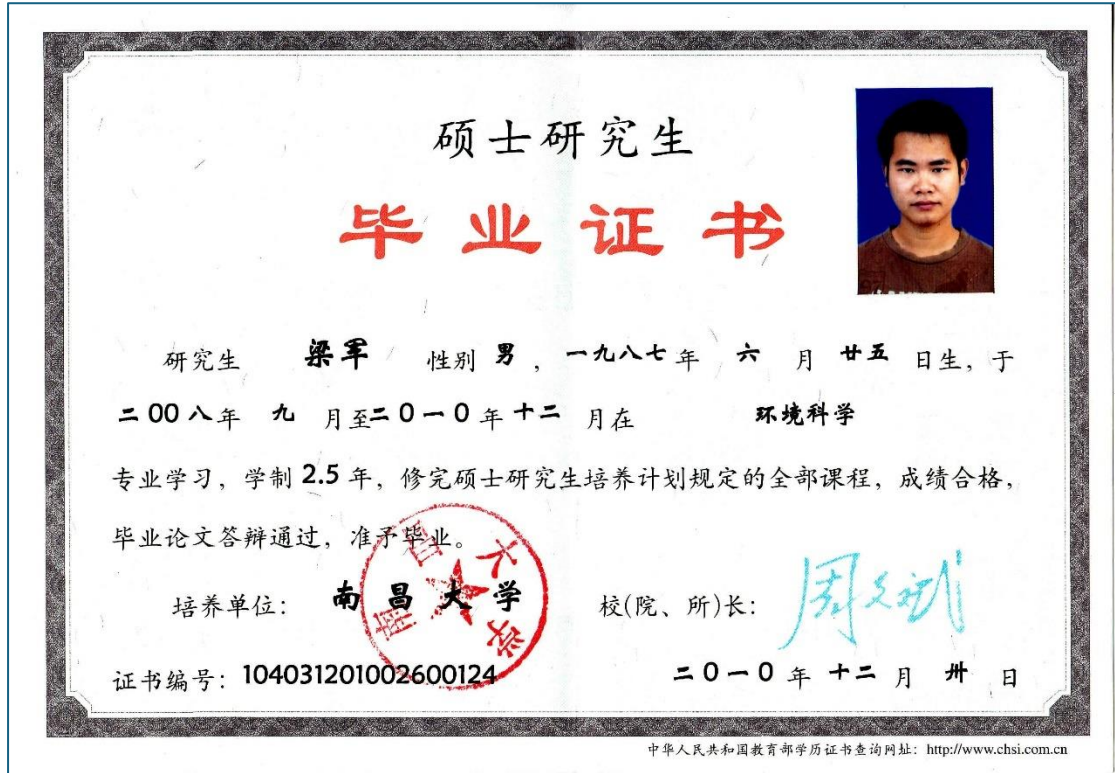 硕士研究生
毕业证书
研究生 梁军 性别 男，一九八七年 六 月 廿五 日生，于
二00八年 九 月至二0一0年十二 月在 环境科学
专业学习，学制 2.5 年，修完硕士研究生培养计划规定的全部课程，成绩合格，
毕业论文答辩通过，准予毕业。
南昌大学
培养单位： 南昌大学 校(院、所)长： 周文斌
证书编号：104031201002600124 二0一0 年 十二 月 卅 日
中华人民共和国教育部学历证书查询网址：http://www.chsi.com.cn